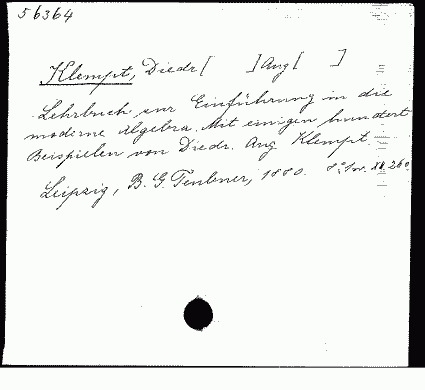 56364
Klempt, Diedr [ ] Aug [ ]
Lehrbuch zur Einführung in die
moderne Algebra. Mit einigen hundert
Beispielen von Diedr. Aug Klempt.
Leipzig, B. G. Teubner, 1880. 8°. 260